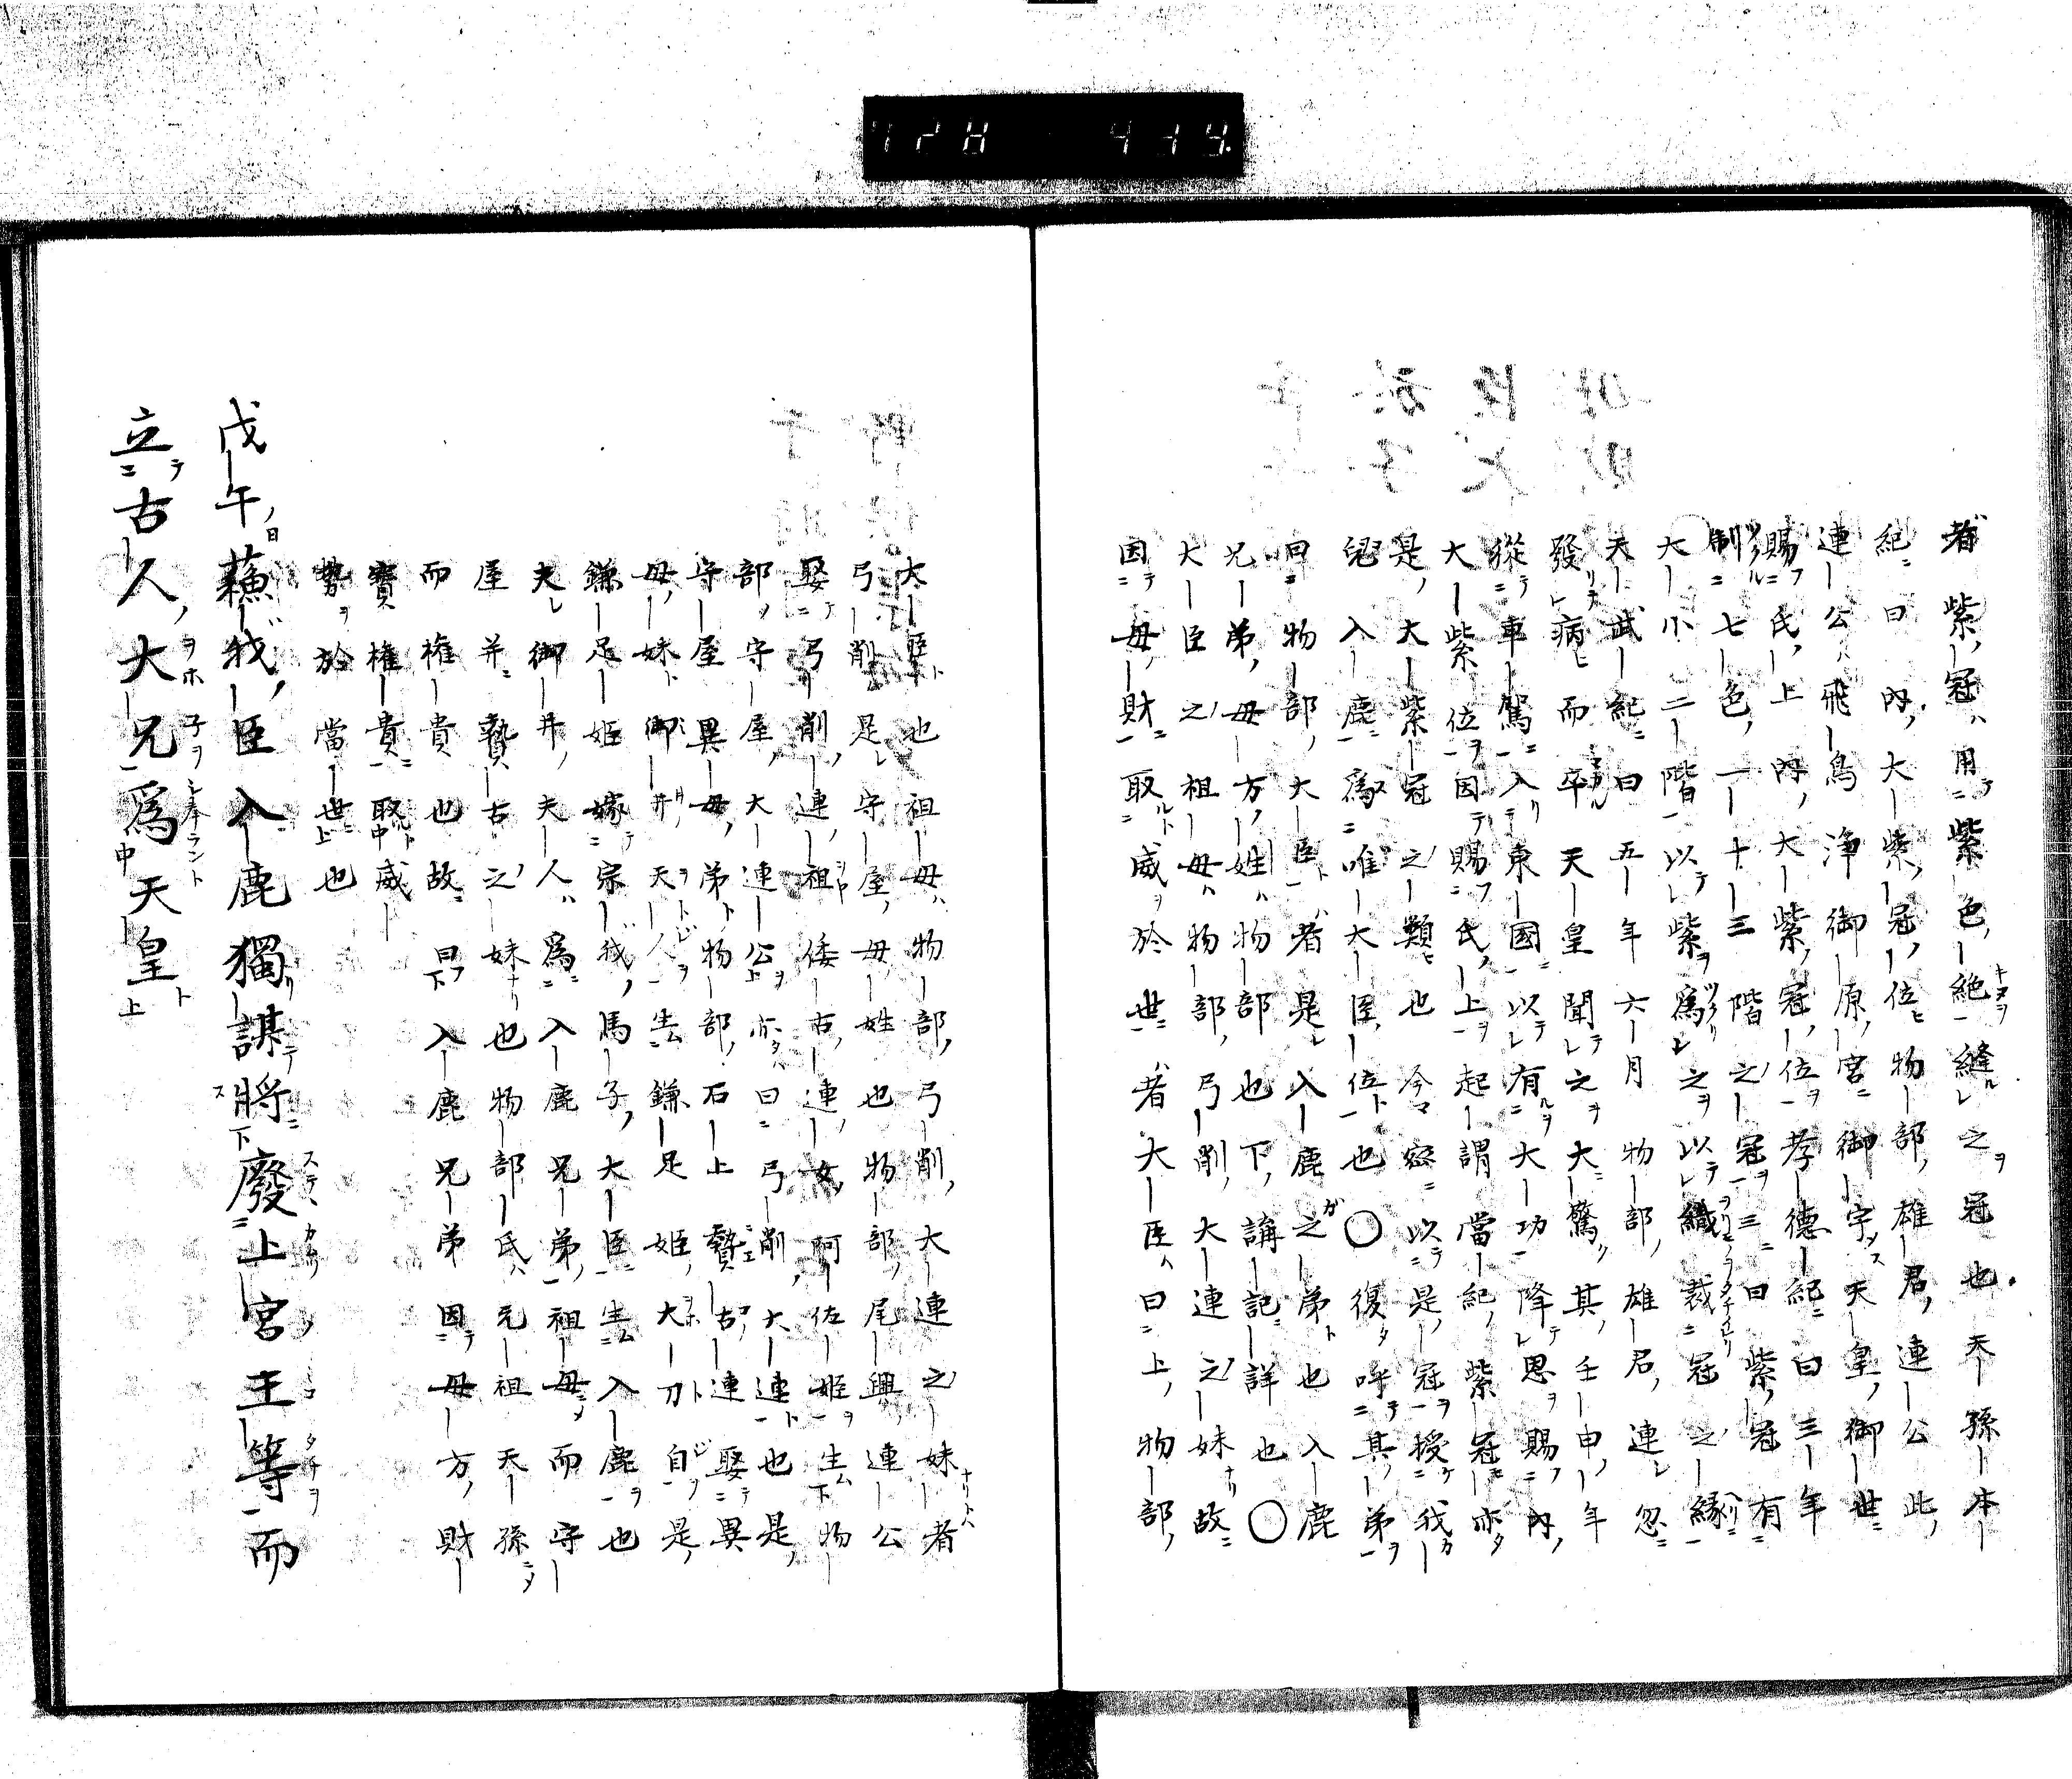 者紫冠用紫色絶縫之冠也天孫本
紀曰内大紫冠位物部雄君連公此
連公飛鳥浄御原宮御宇天皇御世
賜氏上内大紫冠位孝德紀曰三年
制七色一十三階之冠三曰紫冠有
大小二階以紫爲之以織裁冠之縁
天武紀曰五年六月物部雄君連忽
發病而卒天皇聞之大驚其壬申年
從車駕入東國以有大功降恩賜内
大紫位因賜氏上起謂當紀紫冠亦
是大紫冠之類也今密以是冠授我
兒入鹿爲唯大臣位也〇復呼其弟
曰物部大臣者是入鹿之弟也入鹿
兄弟母方姓物部也下講記詳也〇
大臣之祖母物部弓削大連之妹故
因母財取威於世者大臣曰上物部
大臣也祖母物部弓削大連之妹者
弓削是守屋母姓也物部尾輿連公
娶弓削連祖倭古連女阿佐姫生物
部守屋大連公亦曰弓削大連也是
守屋異母弟物部石上贄古連娶異
母妹御井夫人生鎌足姫大刀自是
鎌足姫嫁宗我馬子大臣生入鹿也
夫御井夫人爲入鹿兄弟祖母而守
屋并贄古之妹也物部氏元祖天孫
而権貴也故曰入鹿兄弟因母方財
寶権貴取威
勢於當世也
戊午蘓我臣入鹿獨謀將廢上宮王等而
立古人大兄爲天皇